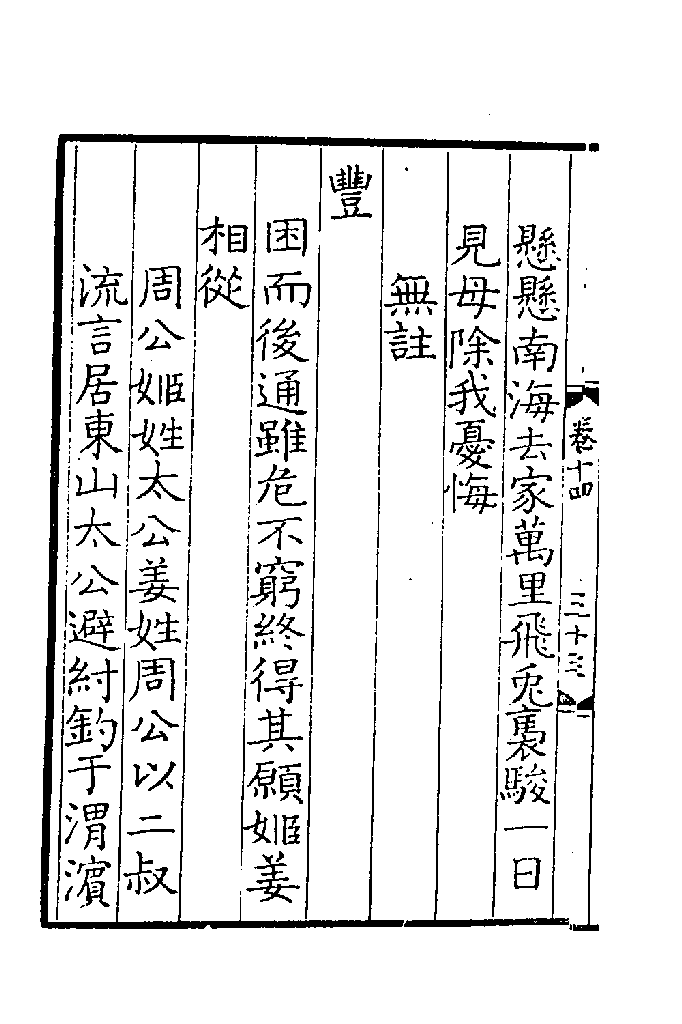 卷十四
三十三
懸懸南海去家萬里飛兎褭駿一日
見母除我憂悔
無註
豐
困而後通雖危不窮終得其願姬姜
相從
周公姬姓太公姜姓周公以二叔
流言居東山太公避紂釣于渭濱